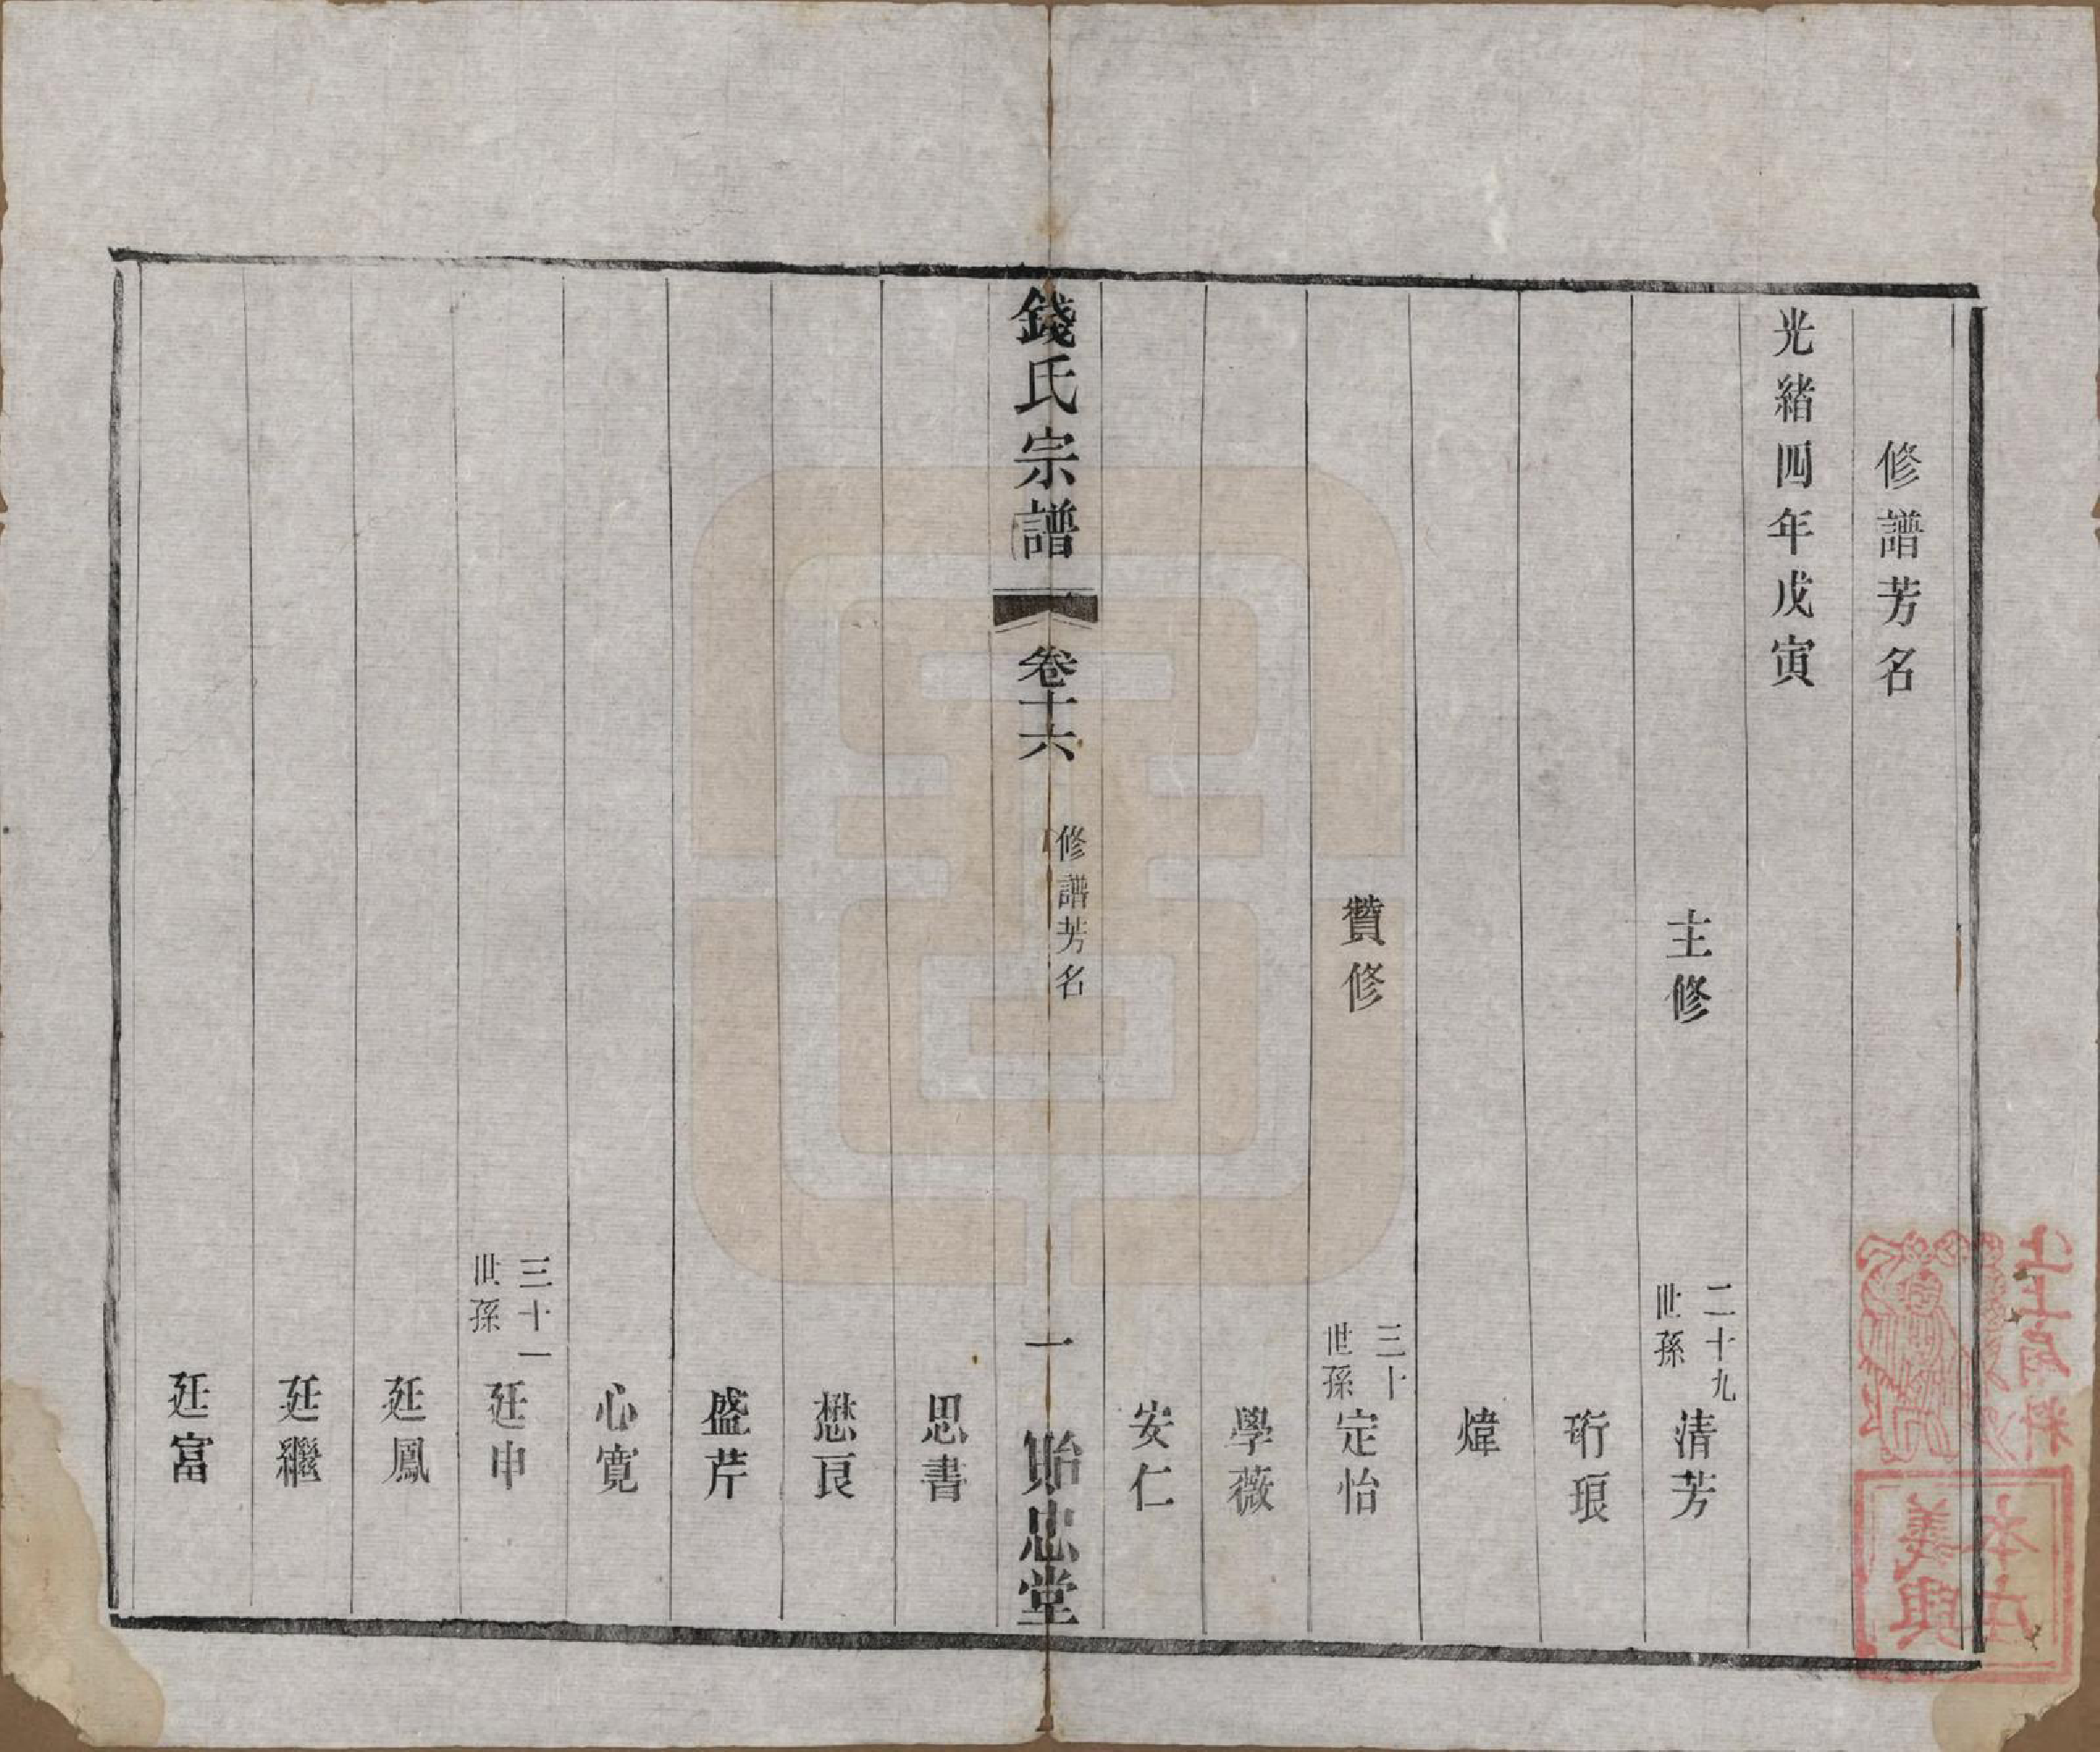 修譜芳名
光緒四年戊寅
主修 二十九世孫 清芳
珩琅
煒
贊修 三十世孫 定怡
學薇
安仁
錢氏宗譜 卷十六 修譜芳名 一 貽忠堂
思書
懋良
盛芹
心寬
三十一世孫 廷申
廷鳳
廷繼
廷富